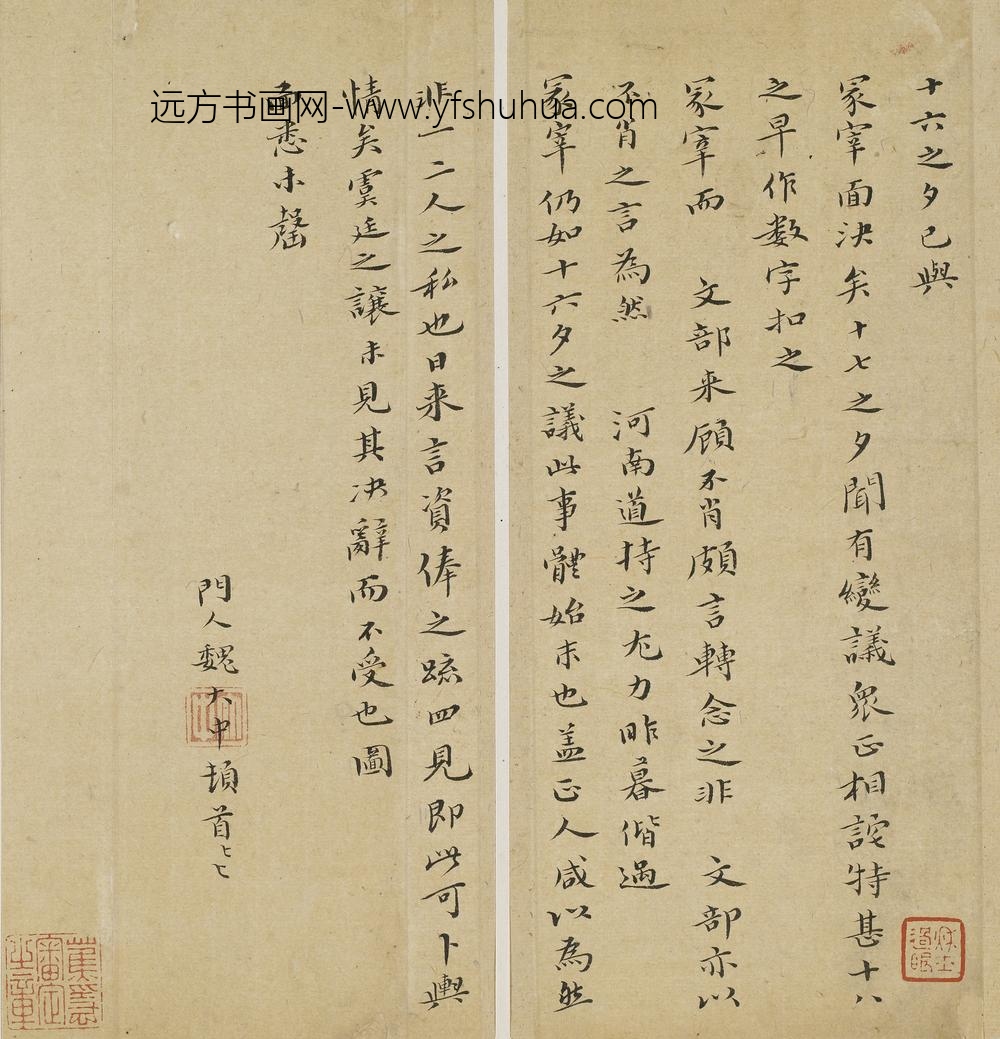 十六之夕已與
冡宰面決矣十七之夕聞有變議衆正相詫特甚十八
之早作数字扣之
冡宰而 文部来顧不肖頗言轉念之非 文部亦以
不肖之言為然 河南道持之尤力昨暮偕過
冡宰仍如十六夕之議此事體始末也盖正人咸以為然
非一二人之私也日来言資俸之疏四見即此可卜輿
情矣虞廷之讓未見其決辭而不受也圖
面悉未罄
門人魏大中頓首
远方书画网-www.yfshuhua.com